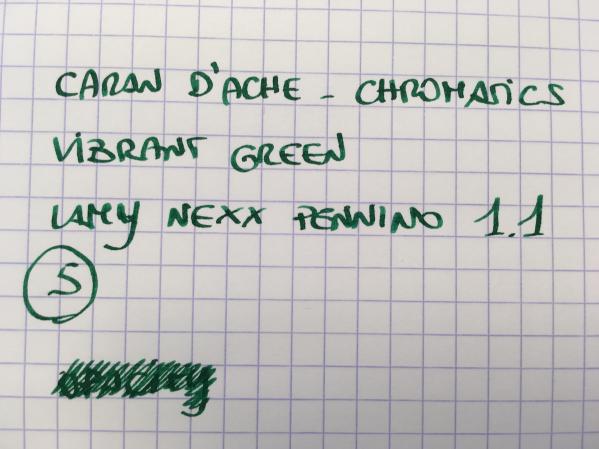 CARAN D'ACHE - CHROMATICS
VIBRANT GREEN
LAMY NEXX PENNINO 1.1
5